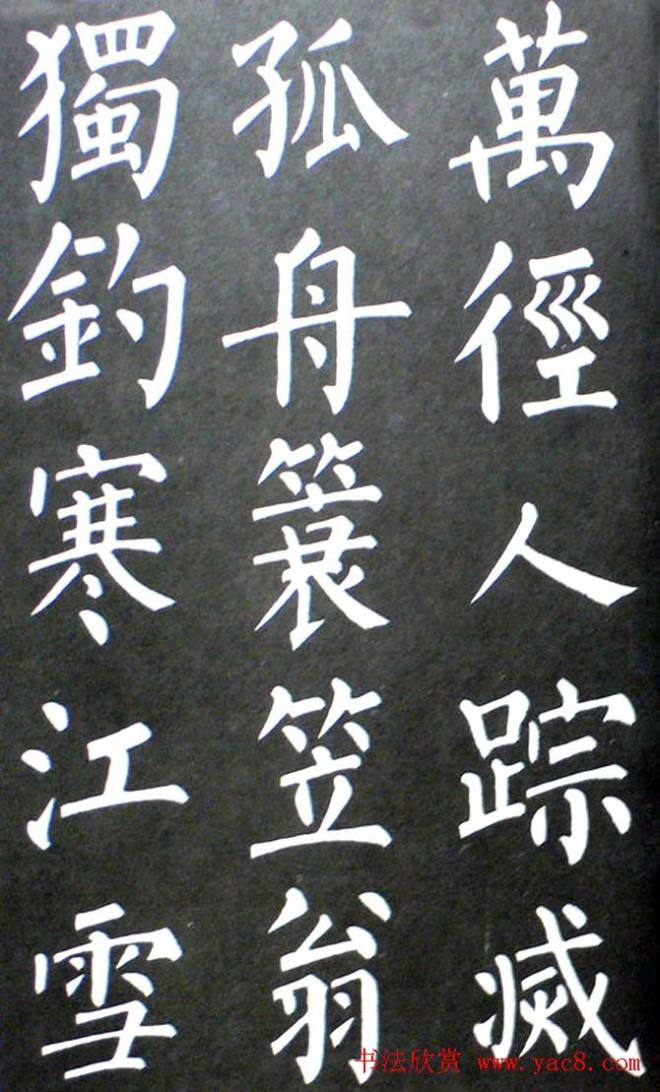 萬徑人踪滅
孤舟簑笠翁
獨釣寒江雪
书法欣赏 www.yac8.com